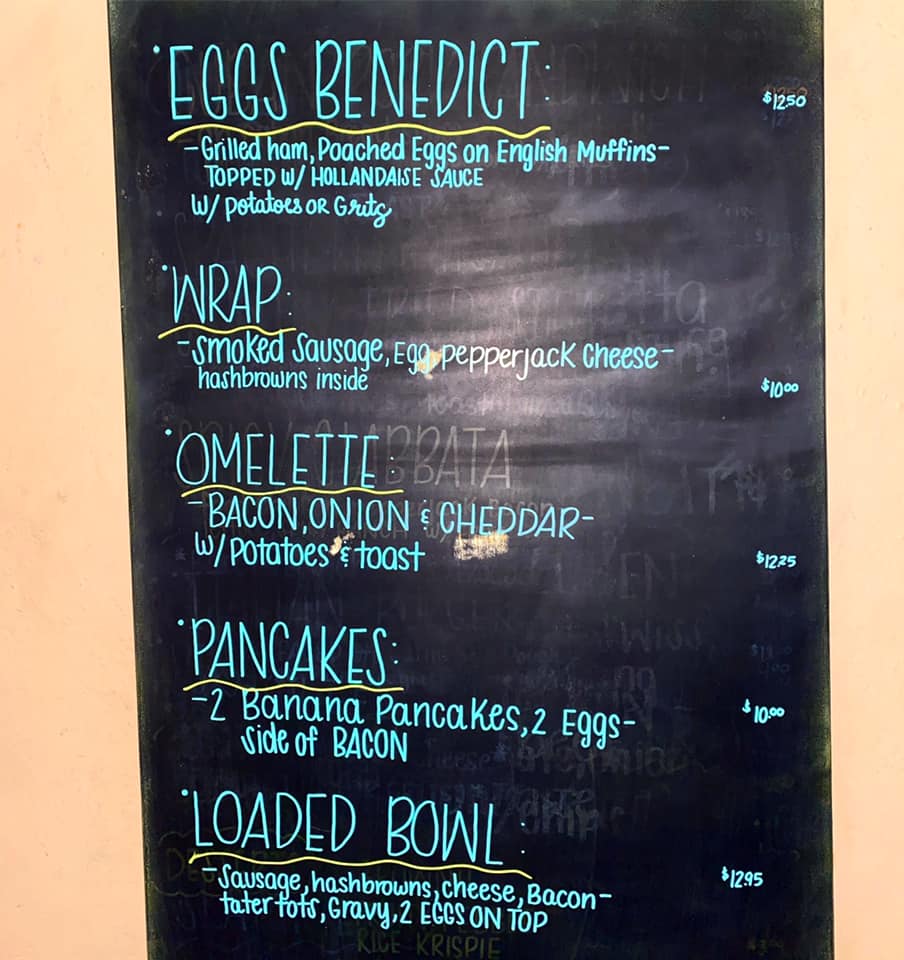 • EGGS BENEDICT:
$12.50
- Grilled ham, Poached Eggs on English Muffins -
TOPPED W/ HOLLANDAISE SAUCE
W/ Potatoes OR Grits
• WRAP:
- Smoked Sausage, Egg, pepperjack Cheese -
hashbrowns inside
$10.00
• OMELETTE:
- BACON, ONION & CHEDDAR -
W/ Potatoes & toast
$12.25
• PANCAKES:
- 2 Banana Pancakes, 2 Eggs -
$10.00
Side of BACON
• LOADED BOWL:
- Sausage, hashbrowns, cheese, Bacon -
$12.95
tater tots, Gravy, 2 EGGS ON TOP
RICE KRISPIE